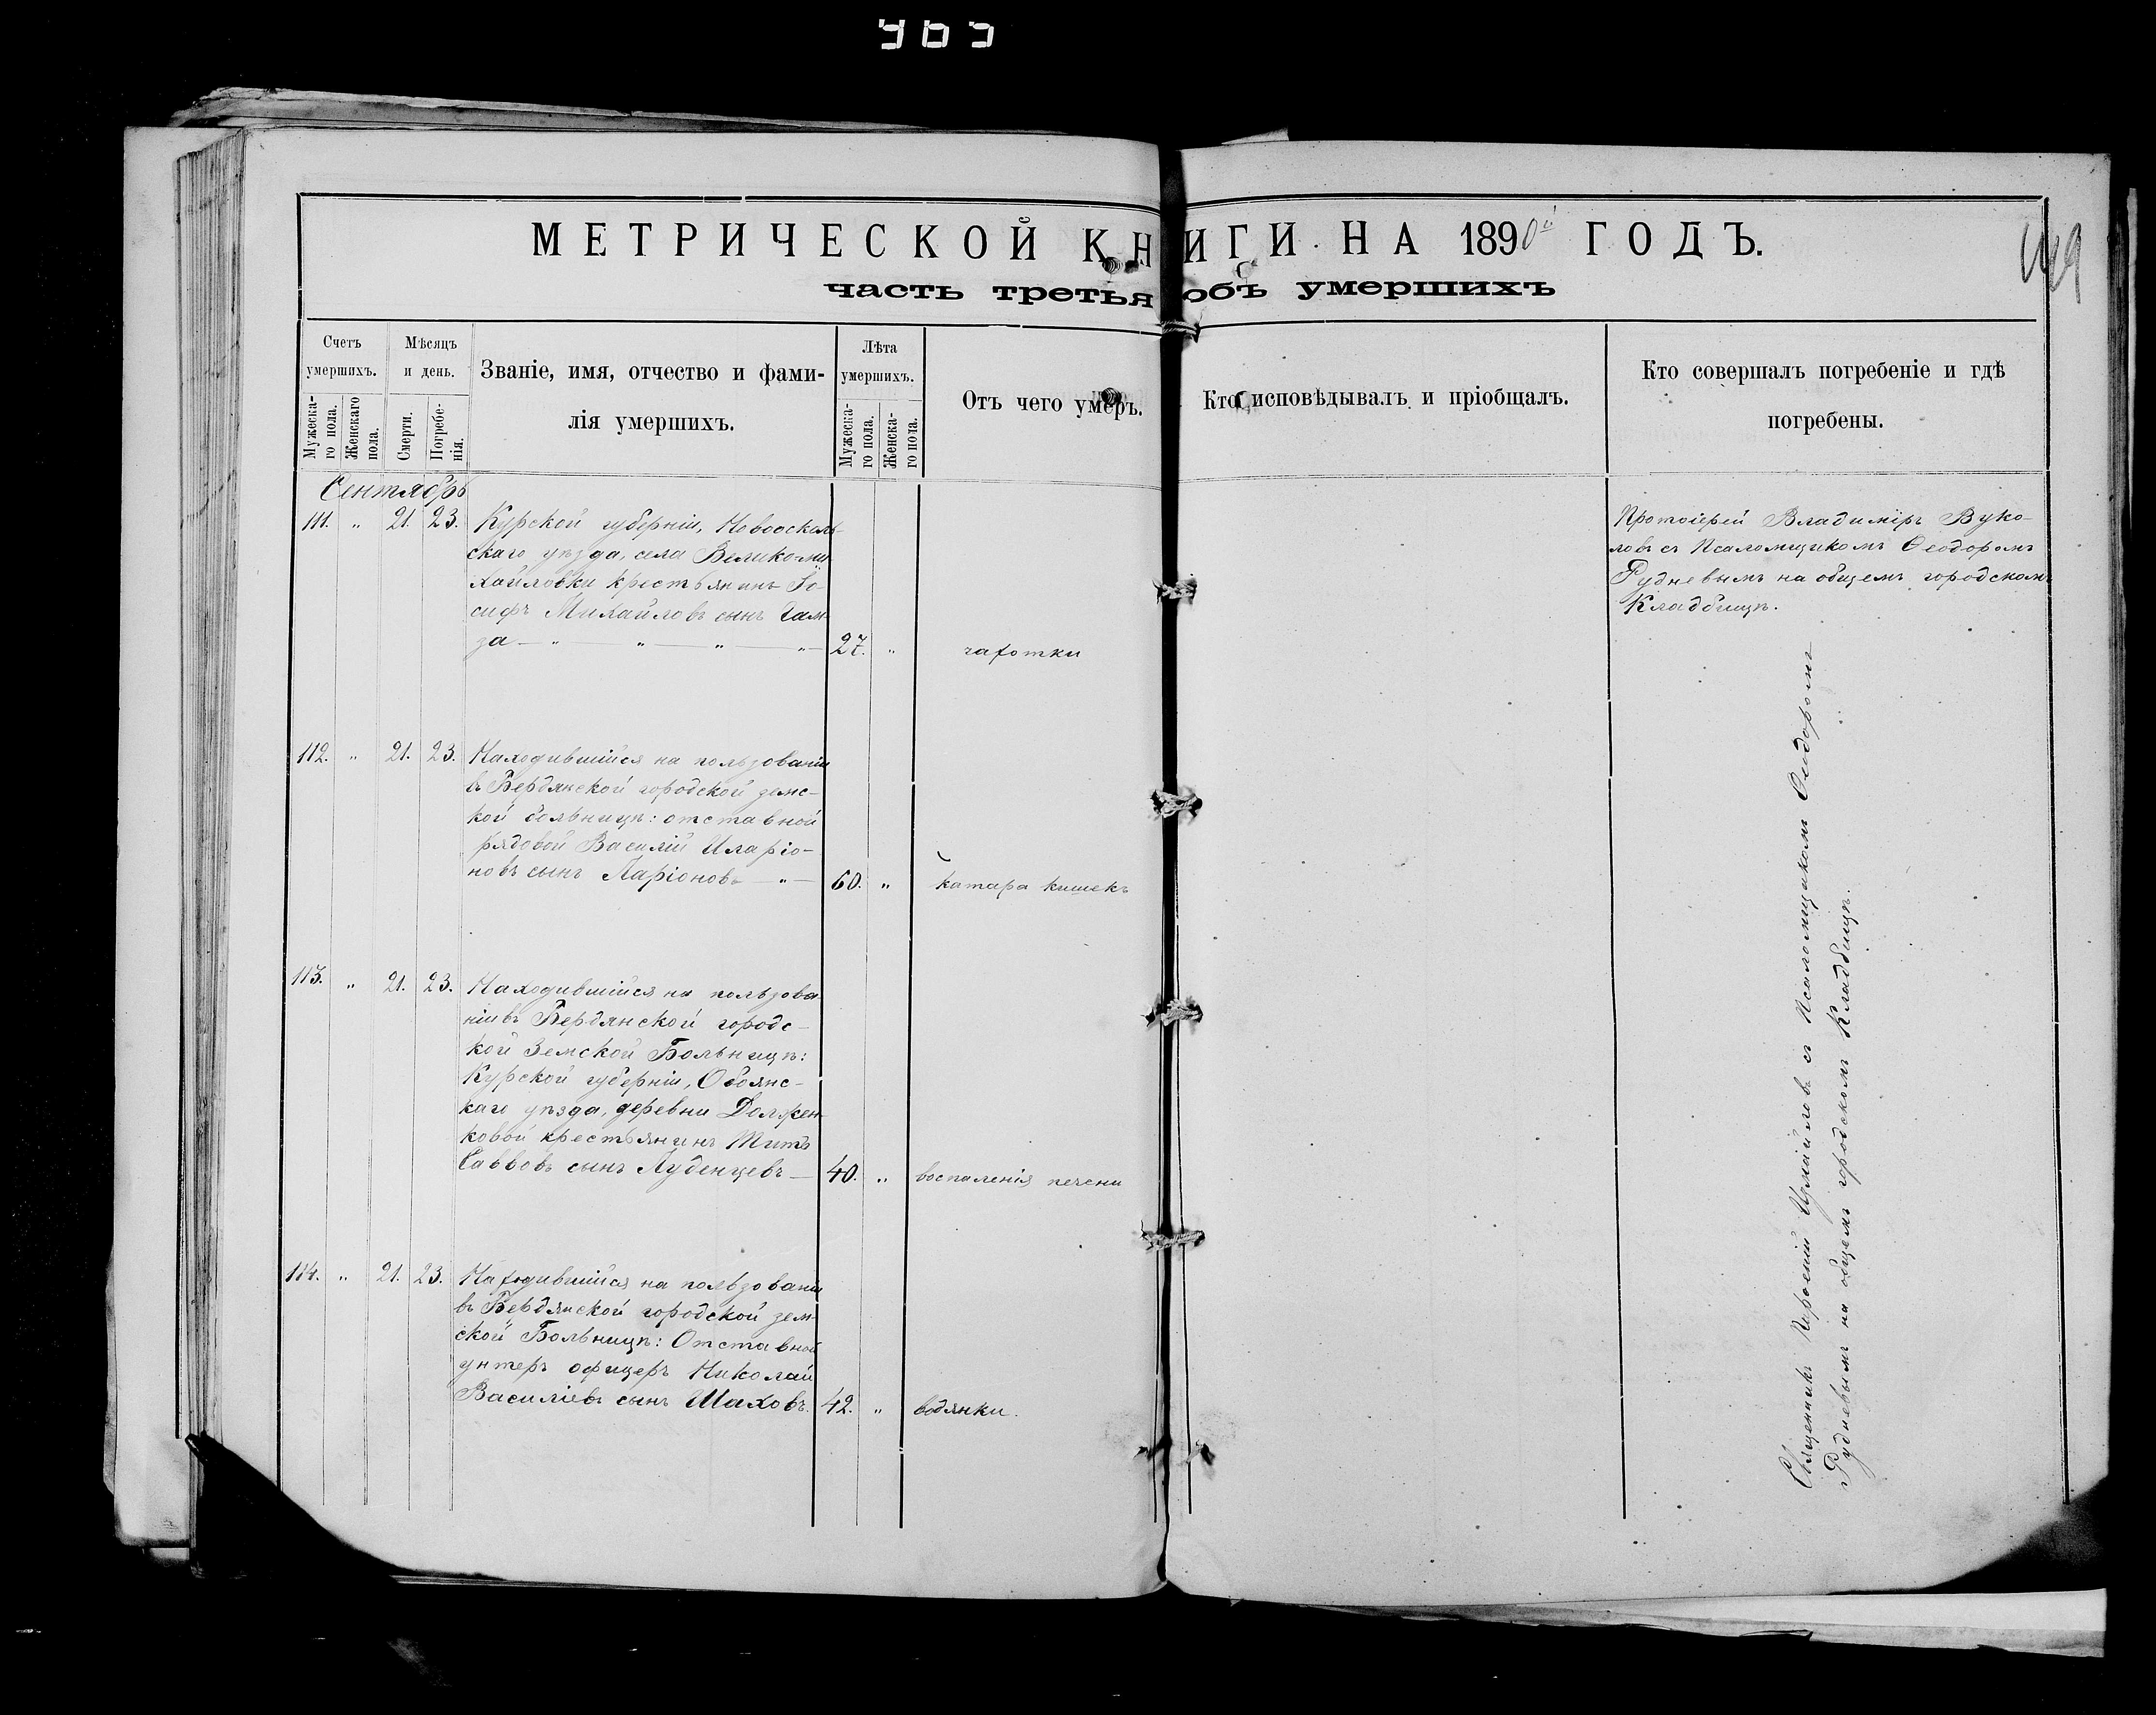 МЕТРИЧЕСКОЙ КНИГИ НА 1890й ГОДЪ.
часть третья объ умершихъ
Счетъ умершихъ.
Мужеска-
го пола.
Женскаго
пола.
Мѣсяцъ
и день.
Смерти.
Погребе-
нія.
Званіе, имя, отчество и фами-
лія умершихъ.
Лѣта
умершихъ.
Мужеска-
го пола.
Женска-
го пола.
Отъ чего умеръ.
Кто исповѣдывалъ и пріобщалъ.
Кто совершалъ погребеніе и гдѣ
погребены.
Сентябрь
111. " 21. 23. Курской губерніи, Новооскол-
скаго уѣзда, села Великоми-
хайловки крестьянинъ Іо-
сифъ Михайловъ сынъ Гам-
за — " — " — " — " — 27. " чахотки
Протоіерей Владиміръ Вуко-
ловъ съ Псаломщикомъ Ѳеодоромъ
Рудневымъ на общемъ городскомъ
Кладбищѣ.
112. " 21. 23. Находившійся на пользованіи
въ Бердянской городской земс-
кой больницѣ: отставной
рядовой Василій Иларіо-
новъ сынъ Ларіоновъ — " — 60. " катара кишекъ
113. " 21. 23. Находившійся на пользова-
ніи въ Бердянской городс-
кой Земской Больницѣ:
Курской губерніи, Обоянс-
каго уѣзда, деревни Должен-
ковой крестьянинъ Титъ
Саввовъ сынъ Луденцевъ — 40. " воспаленія печени
114. " 21. 23. Находившійся на пользованіи
въ Бердянской городской зем-
ской Больницѣ: Отставной
унтеръ офицеръ Николай
Василіевъ сынъ Шаховъ. 42. " водянки.
Священникъ Измаиловъ съ Псаломщикомъ Ѳеодоромъ
Рудневымъ на общемъ городскомъ Кладбищѣ.